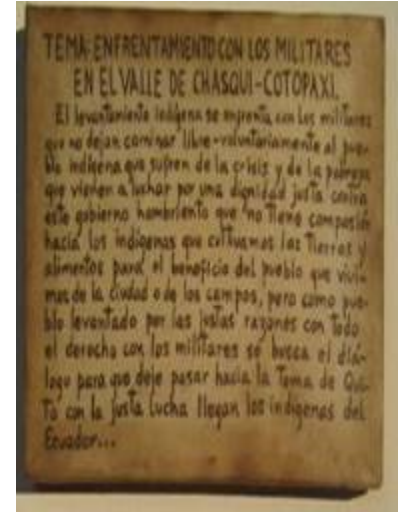 TEMA-ENFRENTAMIENTO CON LOS MILITARES
EN EL VALLE DE CHASQUI-COTOPAXI.
El levantamiento indígena se enfrenta con los militares
que no dejan caminar libre-voluntariamente al pue-
blo indígena que sufren de la crisis y de la pobreza
que vienen a luchar por una dignidad justa contra
este gobierno hambriento que no tiene compasión
hacia los indígenas que cultivamos las Tierras y
alimentos para el beneficio del pueblo que vivi-
mos de la ciudad o de los campos, pero como pue-
blo levantado por las justas razones con todo
el derecho con los militares se busca el diá-
logo para que deje pasar hacia la Toma de Qui-
To con la justa lucha llegan los indígenas del
Ecuador...